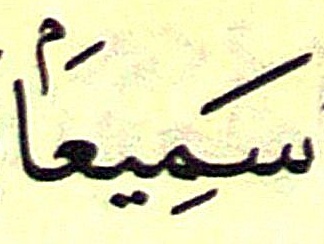 سَمِيعَۢا